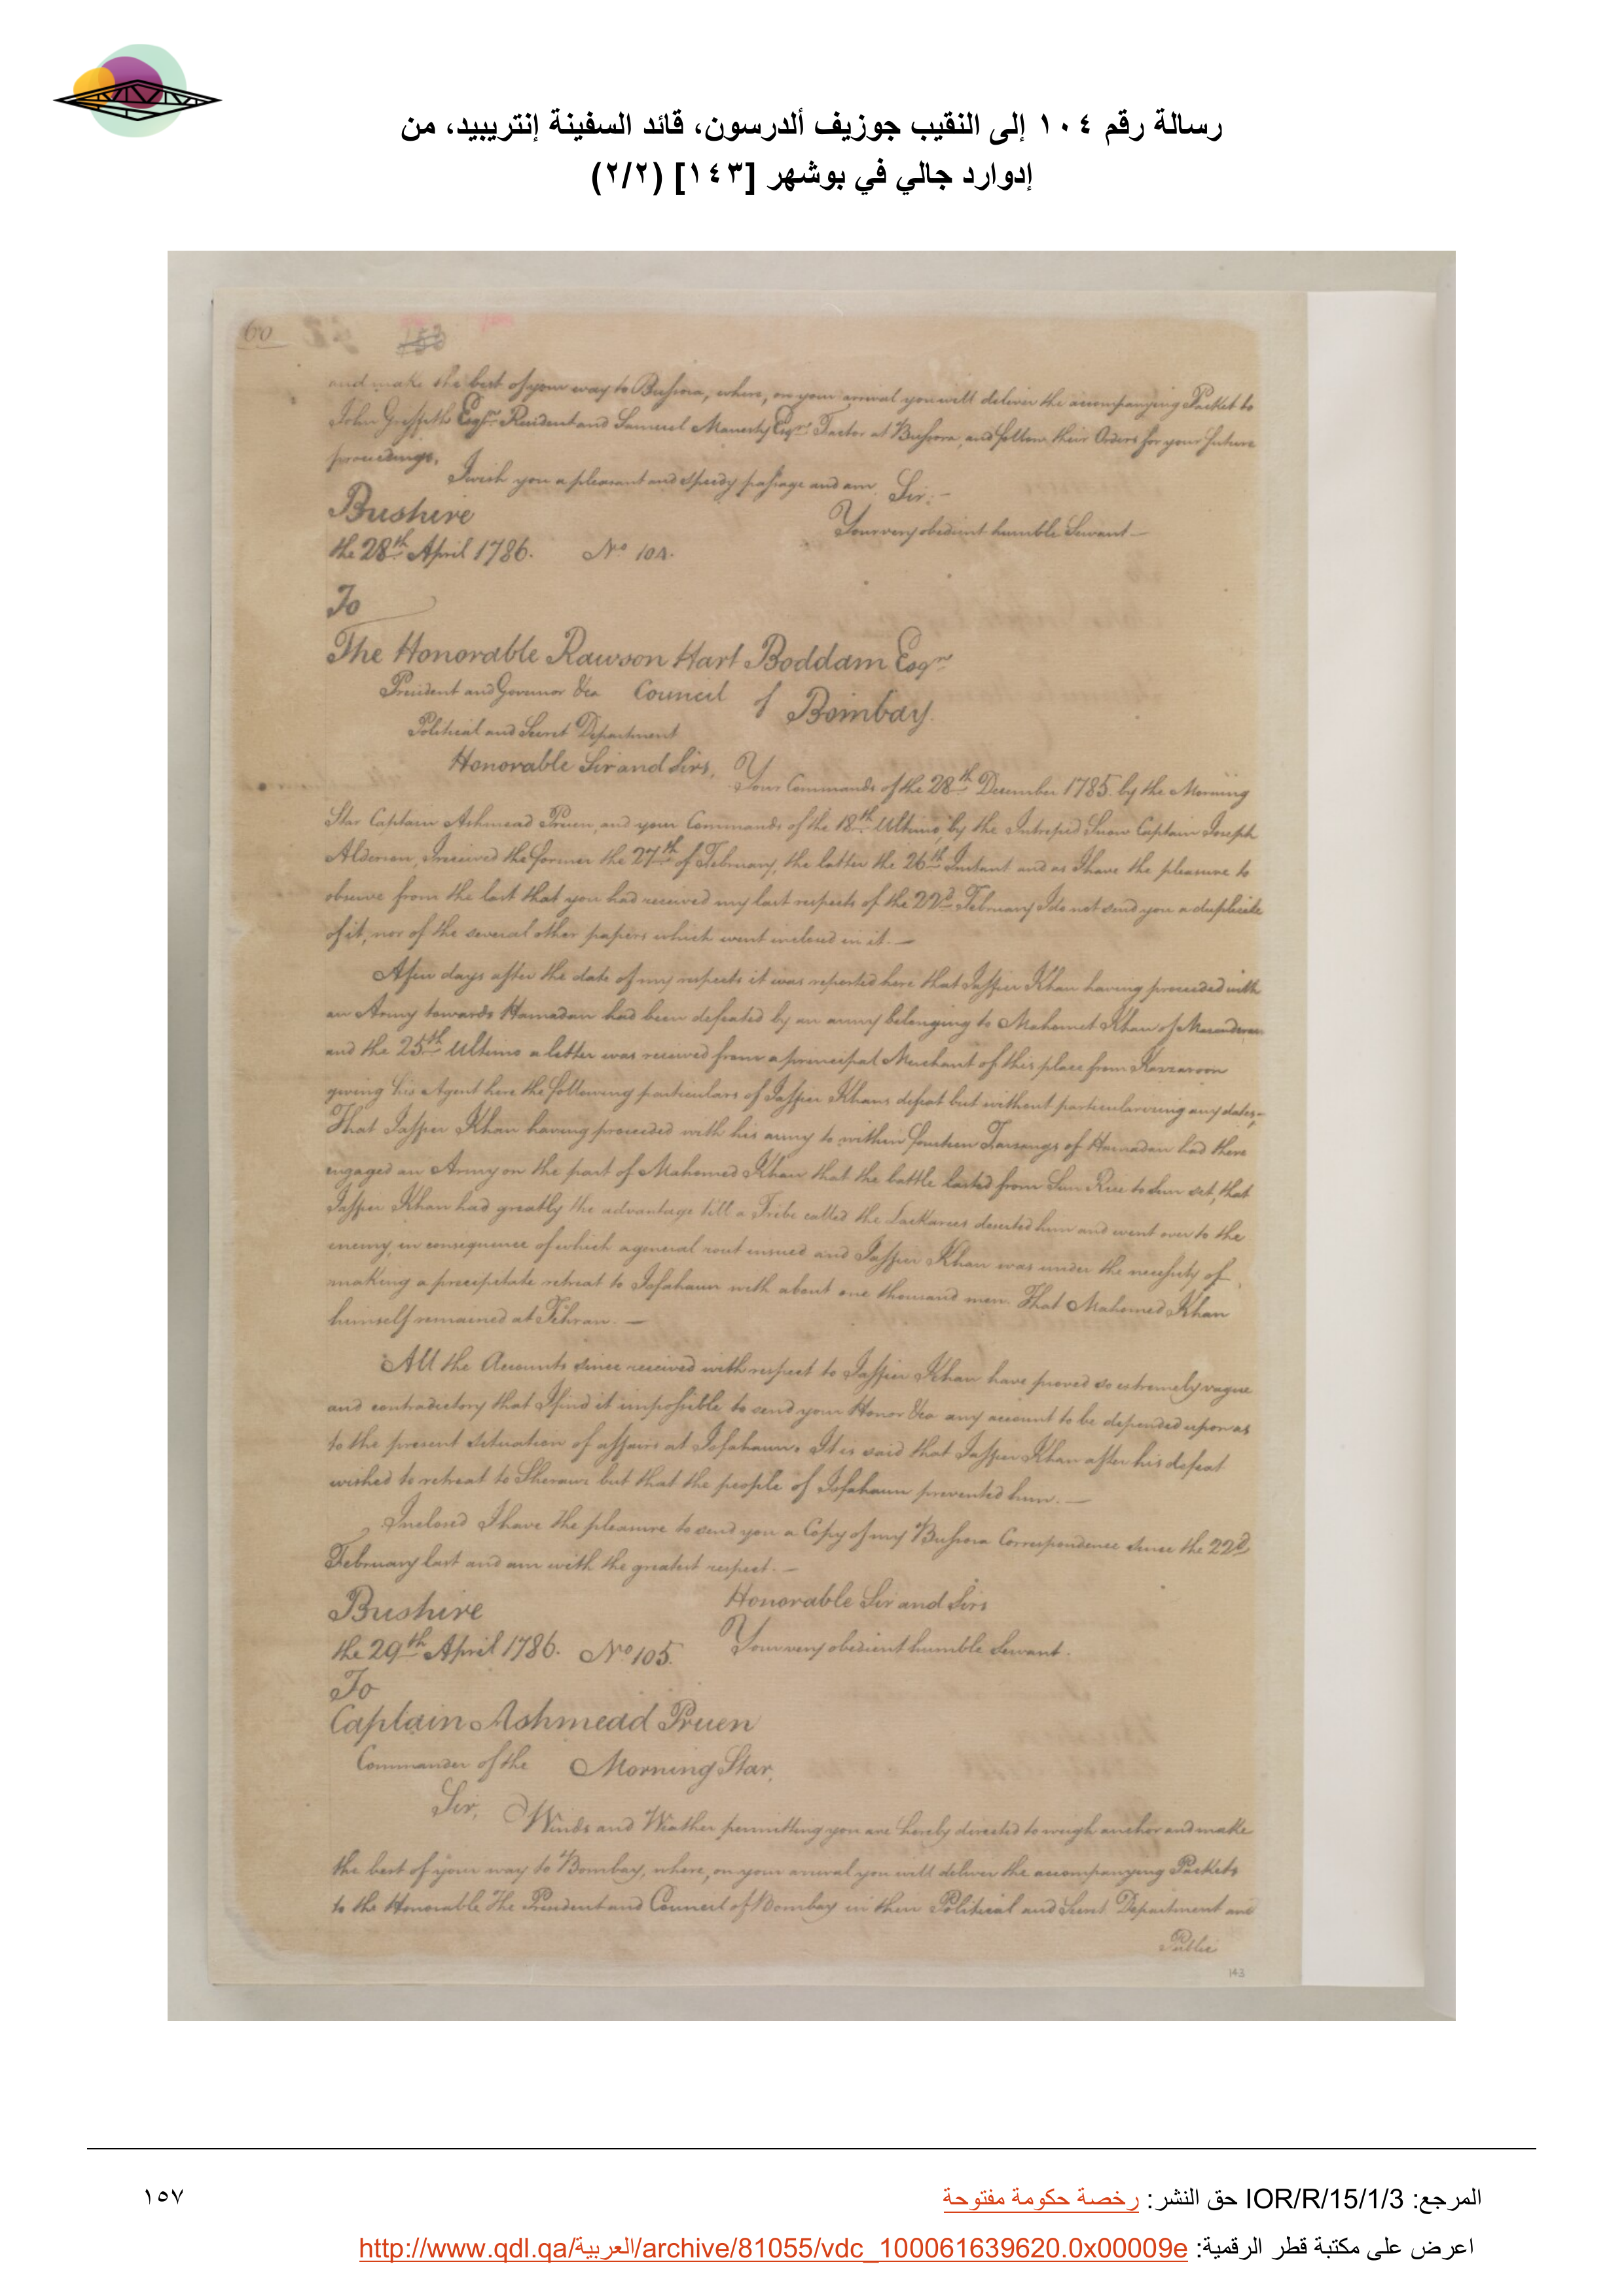 رسالة رقم ١٠٤ إلى النقيب جوزيف ألدرسون، قائد السفينة إنتريبيد، من
إدوارد جالي في بوشهر [١٤٣] (٢/٢)
60
153
and make the best of your way to Bussora, where, on your arrival you will deliver the accompanying Packet to
John Griffiths Esqr. Resident and Samuel Manesty Esqr. Factor at Bussora, and follow their Orders for your future
proceedings.
I wish you a pleasant and speedy passage and am Sir:-
Bushire
Your very obedient humble Servant
the 28th April 1786. No 104.
To
The Honorable Rawson Hart Boddam Esqr
President and Governor &ca Council of Bombay.
Political and Secret Department
Honorable Sir and Sirs,
Your Commands of the 28th December 1785 by the Morning
Star Captain Ashmead Pruen, and your Commands of the 18th Ultimo, by the Intrepid Snow Captain Joseph
Alderson, I received the former the 27th of February, the latter the 26th Instant and as I have the pleasure to
observe from the last that you had received my last respects of the 22d February I do not send you a duplicate
of it, nor of the several other papers which went inclosed in it. —
A few days after the date of my respects it was reported here that Jaffier Khan having proceeded with
an Army towards Hamadan had been defeated by an army belonging to Mahomet Khan of Mazanderan
and the 25th Ultimo a letter was received from a principal Merchant of this place from Kazzaroon
giving his Agent here the following particulars of Jaffier Khans defeat but without particularizing any dates,-
That Jaffier Khan having proceeded with his army to within fourteen Farsangs of Hamadan had there
engaged an Army on the part of Mahomed Khan that the battle lasted from Sun Rise to Sun set, that
Jaffier Khan had greatly the advantage till a Tribe called the deserted him and went over to the
enemy, in consequence of which a general rout insued and Jaffier Khan was under the necessity of
making a precipitate retreat to Isfahaun with about one thousand men. That Mahomed Khan
himself remained at Tehran. —
All the Accounts since received with respect to Jaffier Khan have proved so extremely vague
and contradictory that I find it impossible to send your Honor &ca any account to be depended upon as
to the present situation of affairs at Isfahaun. It is said that Jaffier Khan after his defeat
wished to retreat to Sherauz but that the people of Isfahaun prevented him. —
Inclosed I have the pleasure to send you a Copy of my Bussora Correspondence since the 22d
February last and am with the greatest respect. —
Honorable Sir and Sirs
Bushire
Your very obedient humble Servant.
the 29th April 1786. No 105.
To
Captain Ashmead Pruen
Commander of the Morning Star,
Sir, Winds and Weather permitting you are hereby directed to weigh anchor and make
the best of your way to Bombay, where, on your arrival you will deliver the accompanying Packets
to the Honorable The President and Council of Bombay in their Political and Secret Department and
Public
143
المرجع: IOR/R/15/1/3 حق النشر: رخصة حكومة مفتوحة
١٥٧
اعرض على مكتبة قطر الرقمية: http://www.qdl.qa/العربية/archive/81055/vdc_100061639620.0x00009e